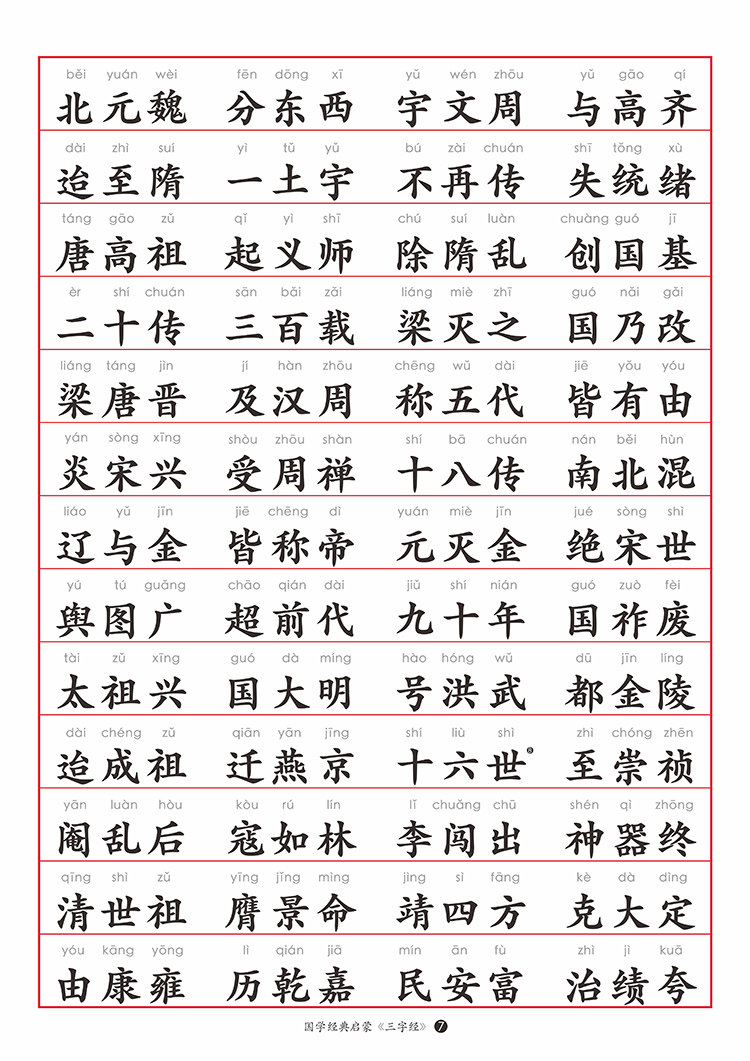 běi yuán wèi fēn dōng xī yǔ wén zhōu yǔ gāo qí
北元魏 分东西 宇文周 与高齐
dài zhì suí yì tǔ yǔ bú zài chuán shī tǒng xù
迨至隋 一土宇 不再传 失统绪
táng gāo zǔ qǐ yì shī chú suí luàn chuàng guó jī
唐高祖 起义师 除隋乱 创国基
èr shí chuán sān bǎi zǎi liáng miè zhī guó nǎi gǎi
二十传 三百载 梁灭之 国乃改
liáng táng jìn jí hàn zhōu chēng wǔ dài jiē yǒu yóu
梁唐晋 及汉周 称五代 皆有由
yán sòng xīng shòu zhōu shàn shí bā chuán nán běi hùn
炎宋兴 受周禅 十八传 南北混
liáo yǔ jīn jiē chēng dì yuán miè jīn jué sòng shì
辽与金 皆称帝 元灭金 绝宋世
yú tú guǎng chāo qián dài jiǔ shí nián guó zuò fèi
舆图广 超前代 九十年 国祚废
tài zǔ xīng guó dà míng hào hóng wǔ dū jīn líng
太祖兴 国大明 号洪武 都金陵
dài chéng zǔ qiān yān jīng shí liù shì zhì chóng zhēn
迨成祖 迁燕京 十六世 至崇祯
yān luàn hòu kòu rú lín lǐ chuǎng chū shén qì zhōng
阉乱后 寇如林 李闯出 神器终
qīng shì zǔ yīng jǐng mìng jìng sì fāng kè dà dìng
清世祖 膺景命 靖四方 克大定
yóu kāng yōng lì qián jiā mín ān fù zhì jì kuā
由康雍 历乾嘉 民安富 治绩夸
国学经典启蒙《三字经》 7